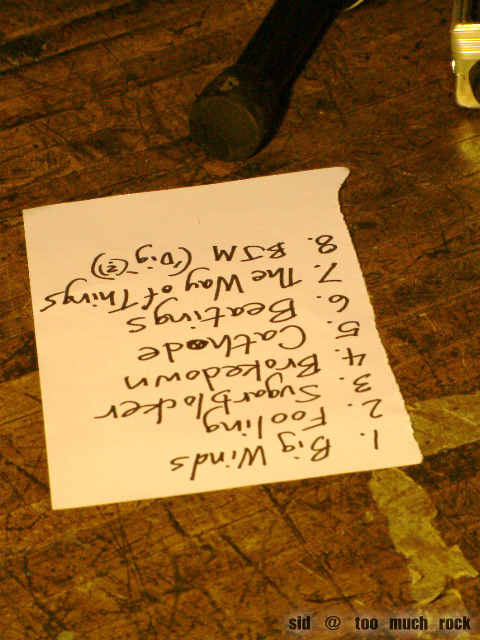 1. Big Winds
2. Fooling
3. Sugarblocker
4. Brokedown
5. Cathode
6. Beatings
7. The Way of Things
8. BJM (Dig(?))
sid @ too much rock